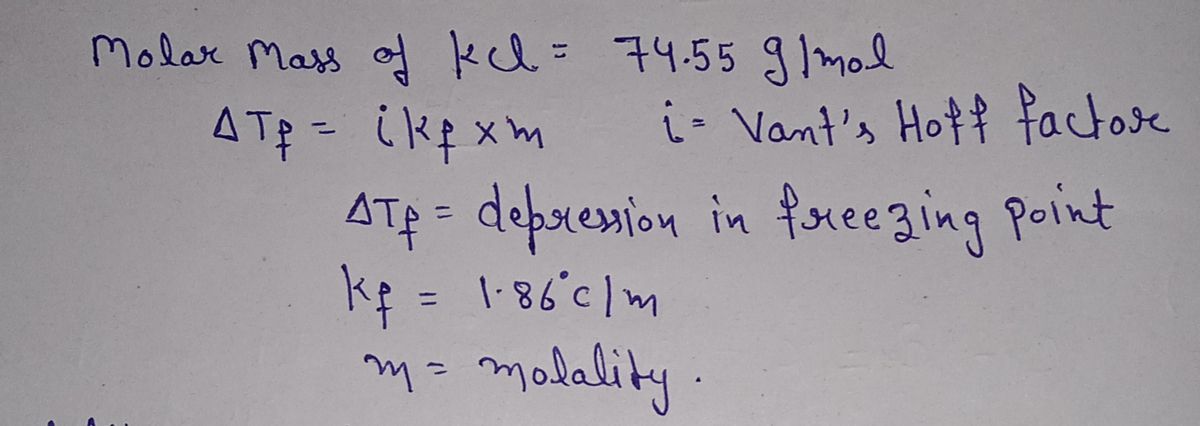 Molar Mass of kcl = 74.55 g/mol
ΔTf = i kf x m i = Vant's Hoff factor
ΔTf = depression in freezing point
kf = 1.86°c/m
m = molality.